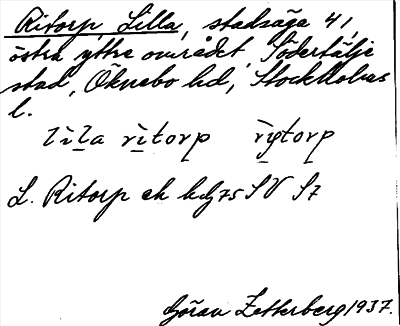 Ritorp Lilla, stadsäga 41,
östra yttre området, Södertälje
stad, Öknebo hd, Stockholms
l.
lìla rìtorp rìgtorp
L. Ritorp ek kbl 75 SV S7
Göran Zetterberg 1937.